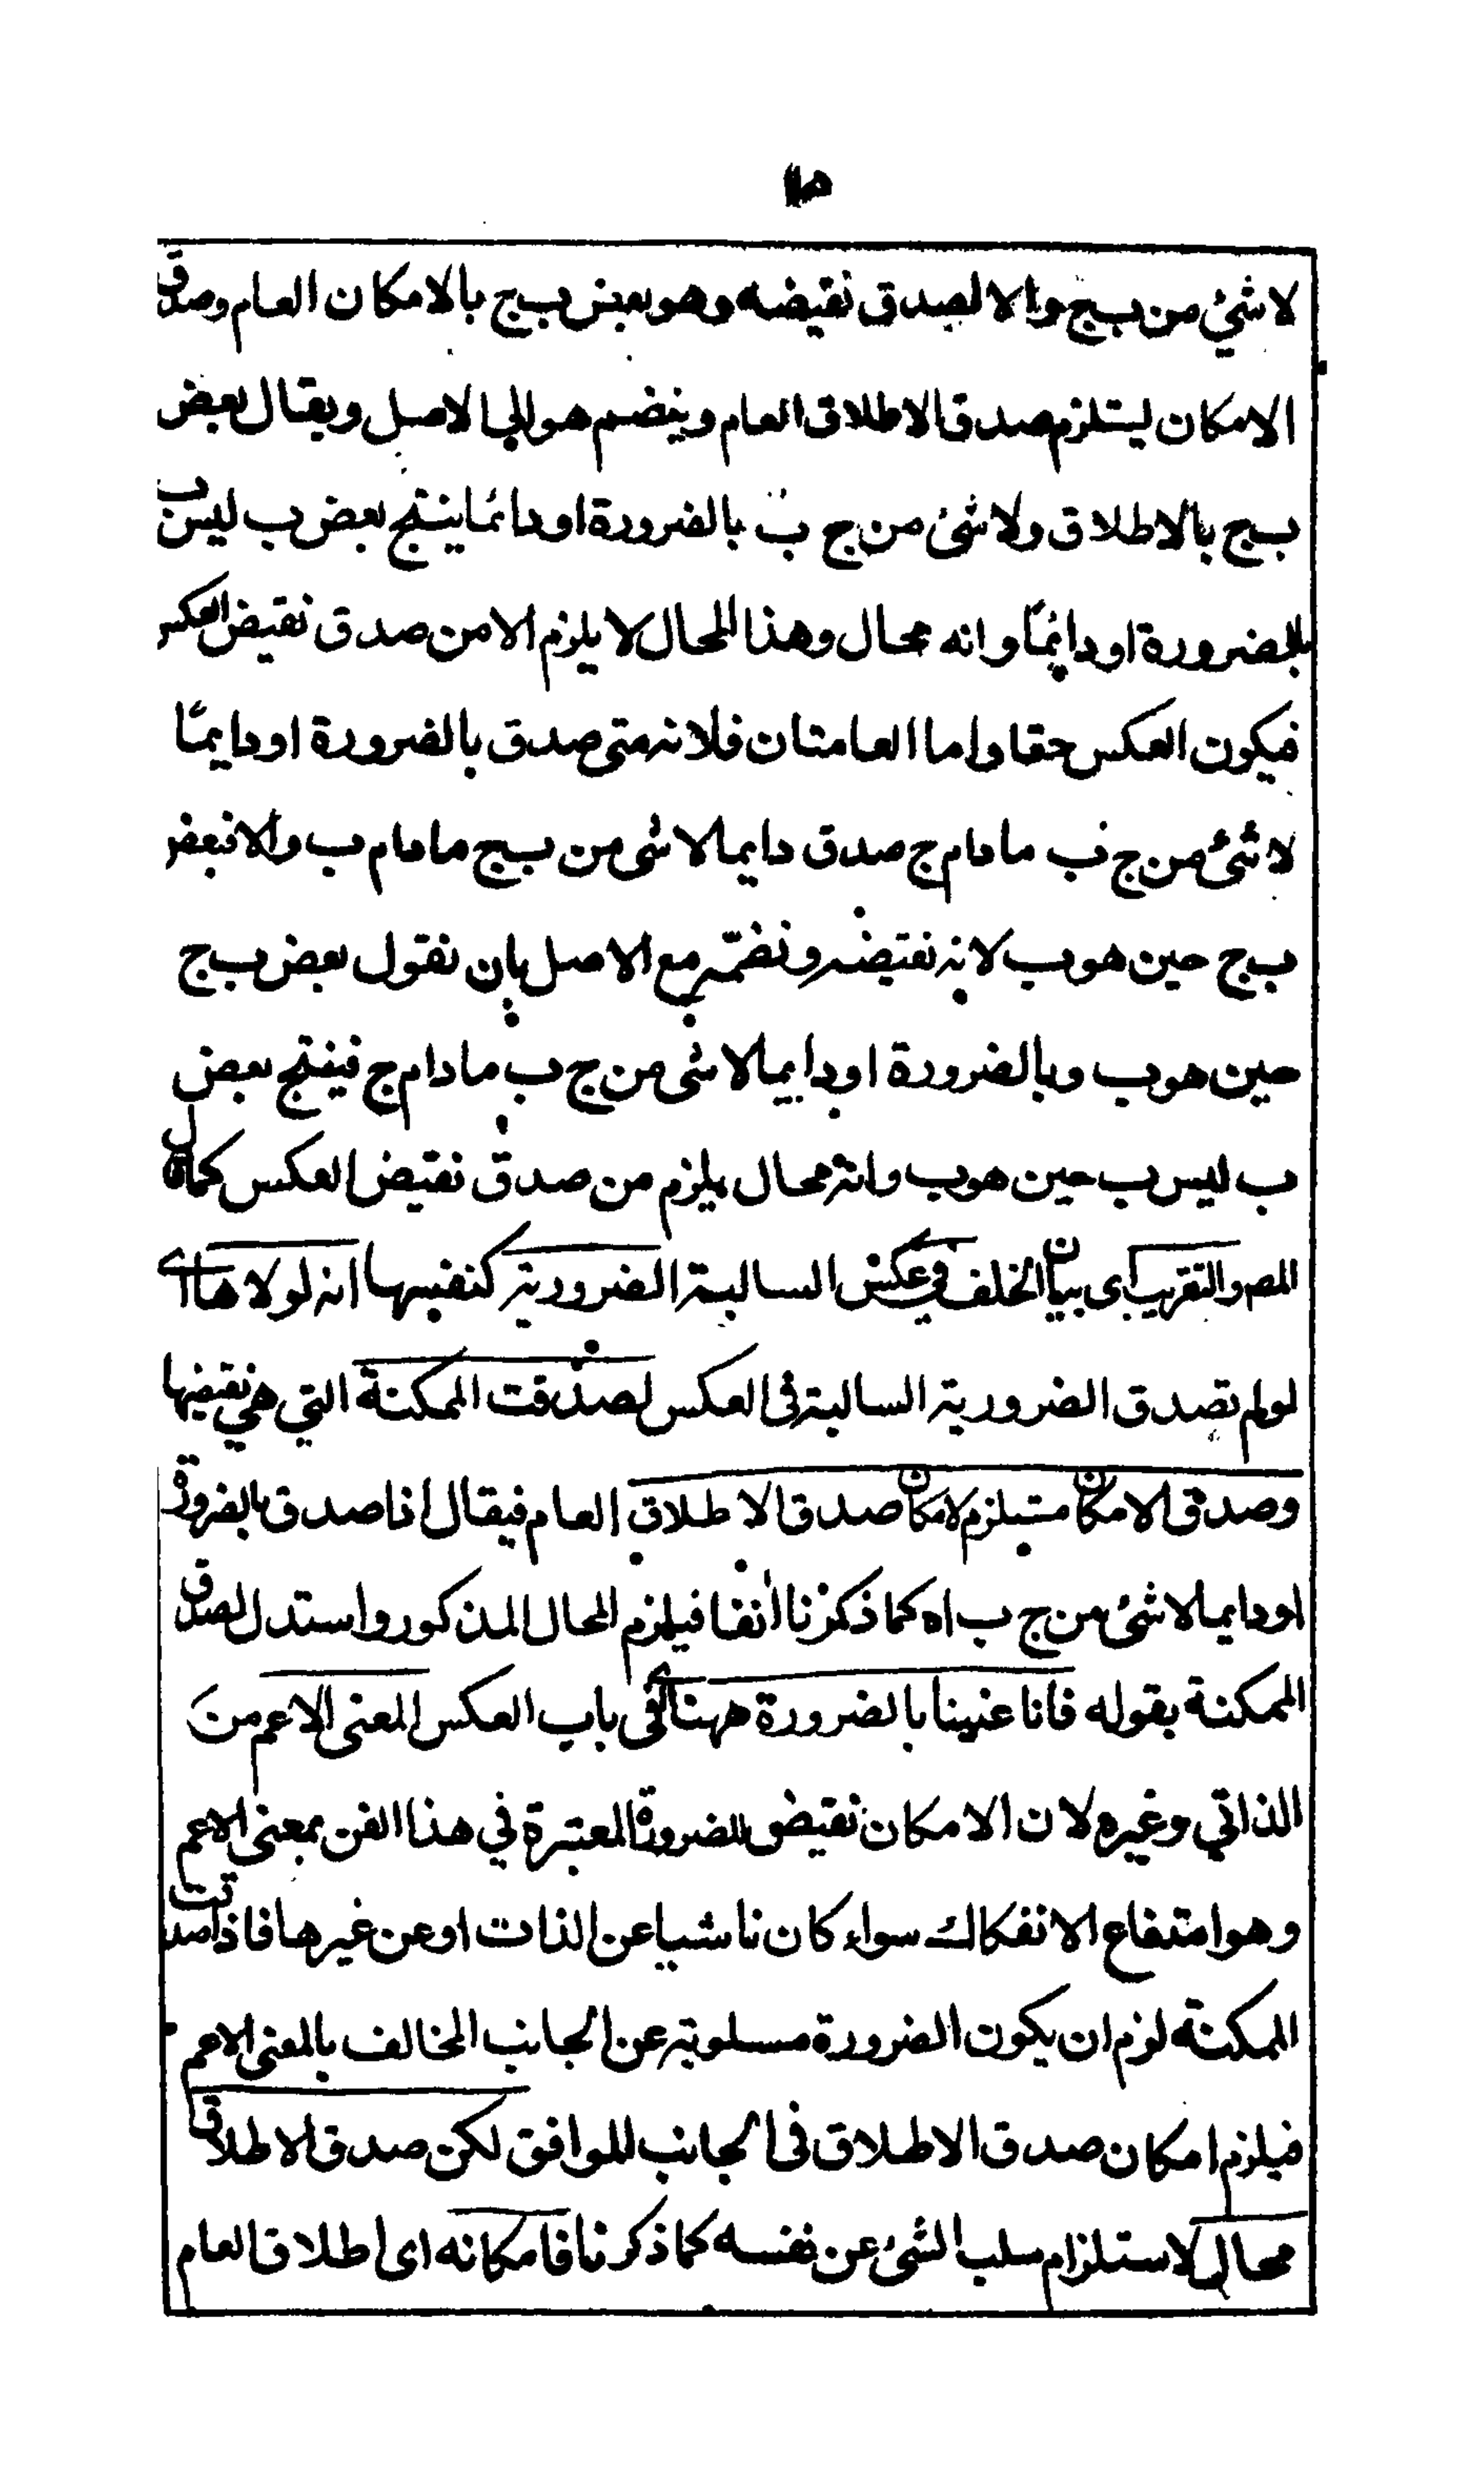 لاشئ من ب ج والا لصدق نقيضه وهو بعض ب ج بالامكان العام وصدق
الامكان يستلزم صدق الاطلاق العام وينضم هو الى الاصل ويقال بعض
ب ج بالاطلاق ولاشئ من ج ب بالضرورة او دائما ينتج بعض ب ليس ب
بالضرورة او دائما وانه محال وهذا المحال لا يلزم الا من صدق نقيض العكس
فيكون العكس حقا واما العامتان فلانه متى صدق بالضرورة او دايما
لاشئ من ج ب مادام ج صدق دايما لاشى من ب ج مادام ب والا فبعض
ب ج حين هو ب لانه نقيضه ونضمّه مع الاصل بان نقول بعض ب ج
حين هو ب وبالضرورة او دايما لاشى من ج ب مادام ج فينتج بعض
ب ليس ب حين هو ب وانه محال يلزم من صدق نقيض العكس كما قال
المصر والتقريب اى بيان الخلف فى عكس السالبة الضرورية كنفسها انه لولاها اى
لو لم تصدق الضرورية السالبة فى العكس لصدقت الممكنة التي هي نقيضها
وصدق الامكان مستلزم لامكان صدق الاطلاق العام فيقال اذا صدق بالضرورة
او دايما لاشئ من ج ب اه كما ذكرنا انفا فيلزم المحال المذكور واستدل لصدق
الممكنة بقوله فانا عنينا بالضرورة ههنا اى فى باب العكس المعنى الاعم من
الذاتي وغيره لان الامكان نقيض للضرورة المعتبرة في هذا الفن بمعنى الاعم
وهو امتناع الانفكاك سواء كان ناشيا عن الذات او عن غيرها فاذا صدقت
الممكنة لزم ان يكون الضرورة مسلوبة عن الجانب المخالف بالمعنى الاعم
فيلزم امكان صدق الاطلاق فى الجانب الموافق لكن صدق الاطلاق
محال لاستلزام سلب الشئ عن نفسه كما ذكرنا فامكانه اى اطلاق العام